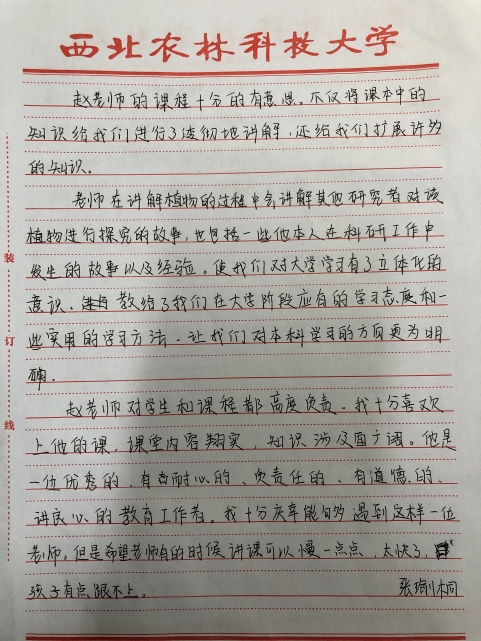 西北农林科技大学
赵老师的课程十分的有意思。不仅将课本中的
知识给我们进行了透彻地讲解,还给我们扩展许多
的知识。
老师在讲解植物的过程中会讲解其他研究者对该
植物进行探究的故事,也包括一些他本人在科研工作中
发生的故事以及经验。使我们对大学学习有了立体化的
意识。教给了我们在大学阶段应有的学习态度和一
些实用的学习方法。让我们对本科学习的方向更为明
确。
赵老师对学生和课程都高度负责。我十分喜欢
上他的课,课堂内容翔实,知识涉及面广阔。他是
一位优秀的、有耐心的、负责任的、有道德的、
讲良心的教育工作者。我十分庆幸能够遇到这样一位
老师。但是希望老师有的时候讲课可以慢一点点,太快了,
孩子有点跟不上。 张桐
装
订
线